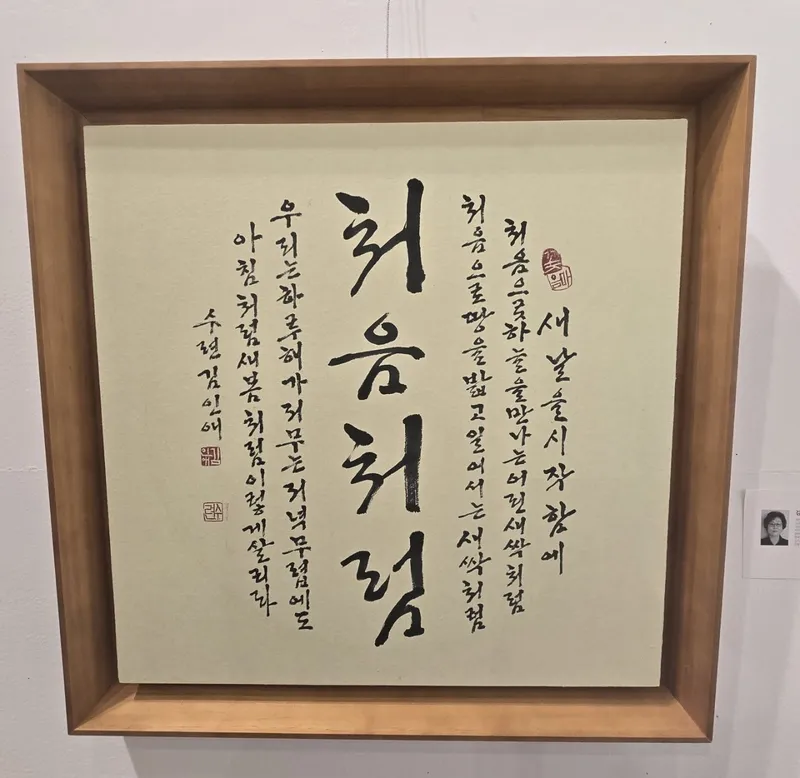 새 날을 시작함에
처음으로 하늘을 만나는 어린 새싹처럼
처음으로 땅을 밟고 일어서는 새싹처럼
처음처럼
우리는 하루해가 저무는 저녁 무렵에도
아침처럼 새봄처럼 이렇게 살리라
수련 김인애